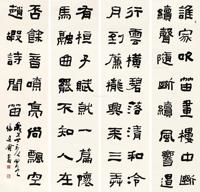 誰家吹笛畫樓中斷
續聲隨斷續風響遏
行雲橫碧落清和冷
月到簾櫳興來三弄
有桓子賦就一篇懷
馬融曲罷不知人在
否餘音嘹喨尚飄空
趙嘏詩聞笛